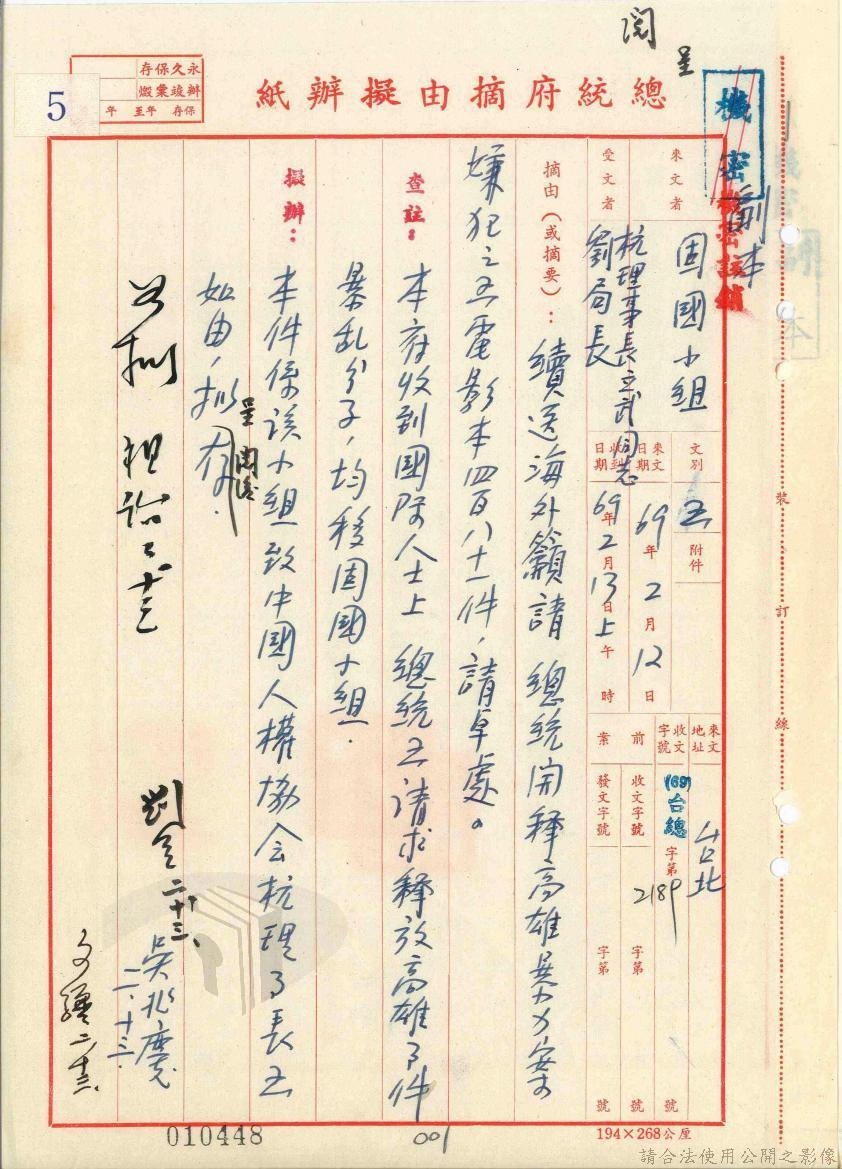 閱
呈
總統府摘由擬辦紙
永久保存
辦竣彙燬
保存 年至 年
5
機密
副本
機密註銷
來文者
固國小組
受文者
杭理事長立武同志
劉局長
文別
附件
來文日期
69年2月12日
收到日期
69年2月13日上午 時
來文地址
台北
收文字號
(69)台總字第2189號
前案
收文字號
字第 號
發文字號
字第 號
摘由(或摘要):
續送海外籲請 總統開釋高雄暴力案
嫌犯之函電影本四百八十一件,請卓處。
查註:
本府收到國際人士上 總統函請求釋放高雄事件
暴乱分子,均移固國小組.
擬辦:
本件係該小組致中國人權協会杭理事長函
如由,拟存.
呈閱後
裝
訂
線
010448
001
194×268公厘
請合法使用公開之影像